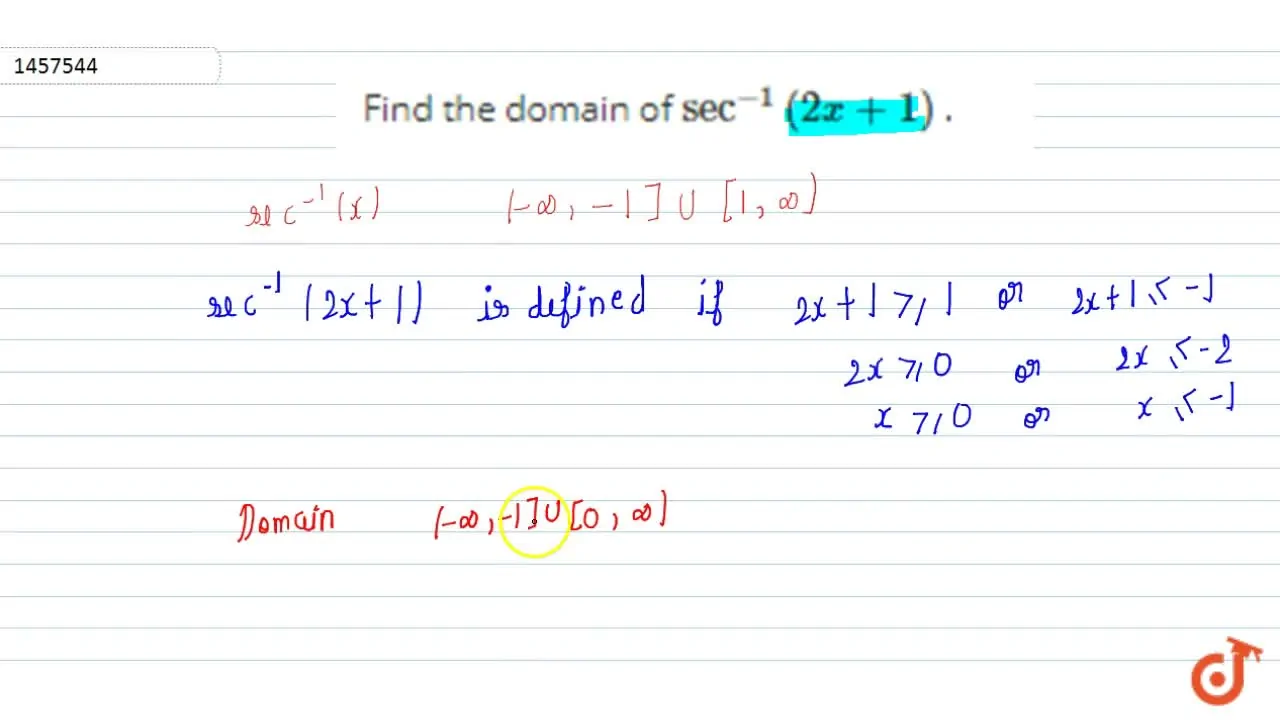 1457544
Find the domain of sec⁻¹ (2x + 1) .
sec⁻¹(x) (-∞, -1] ∪ [1, ∞)
sec⁻¹(2x+1) is defined if 2x+1 ⩾ 1 or 2x+1 ⩽ -1
2x ⩾ 0 or 2x ⩽ -2
x ⩾ 0 or x ⩽ -1
Domain (-∞, -1] ∪ [0, ∞)